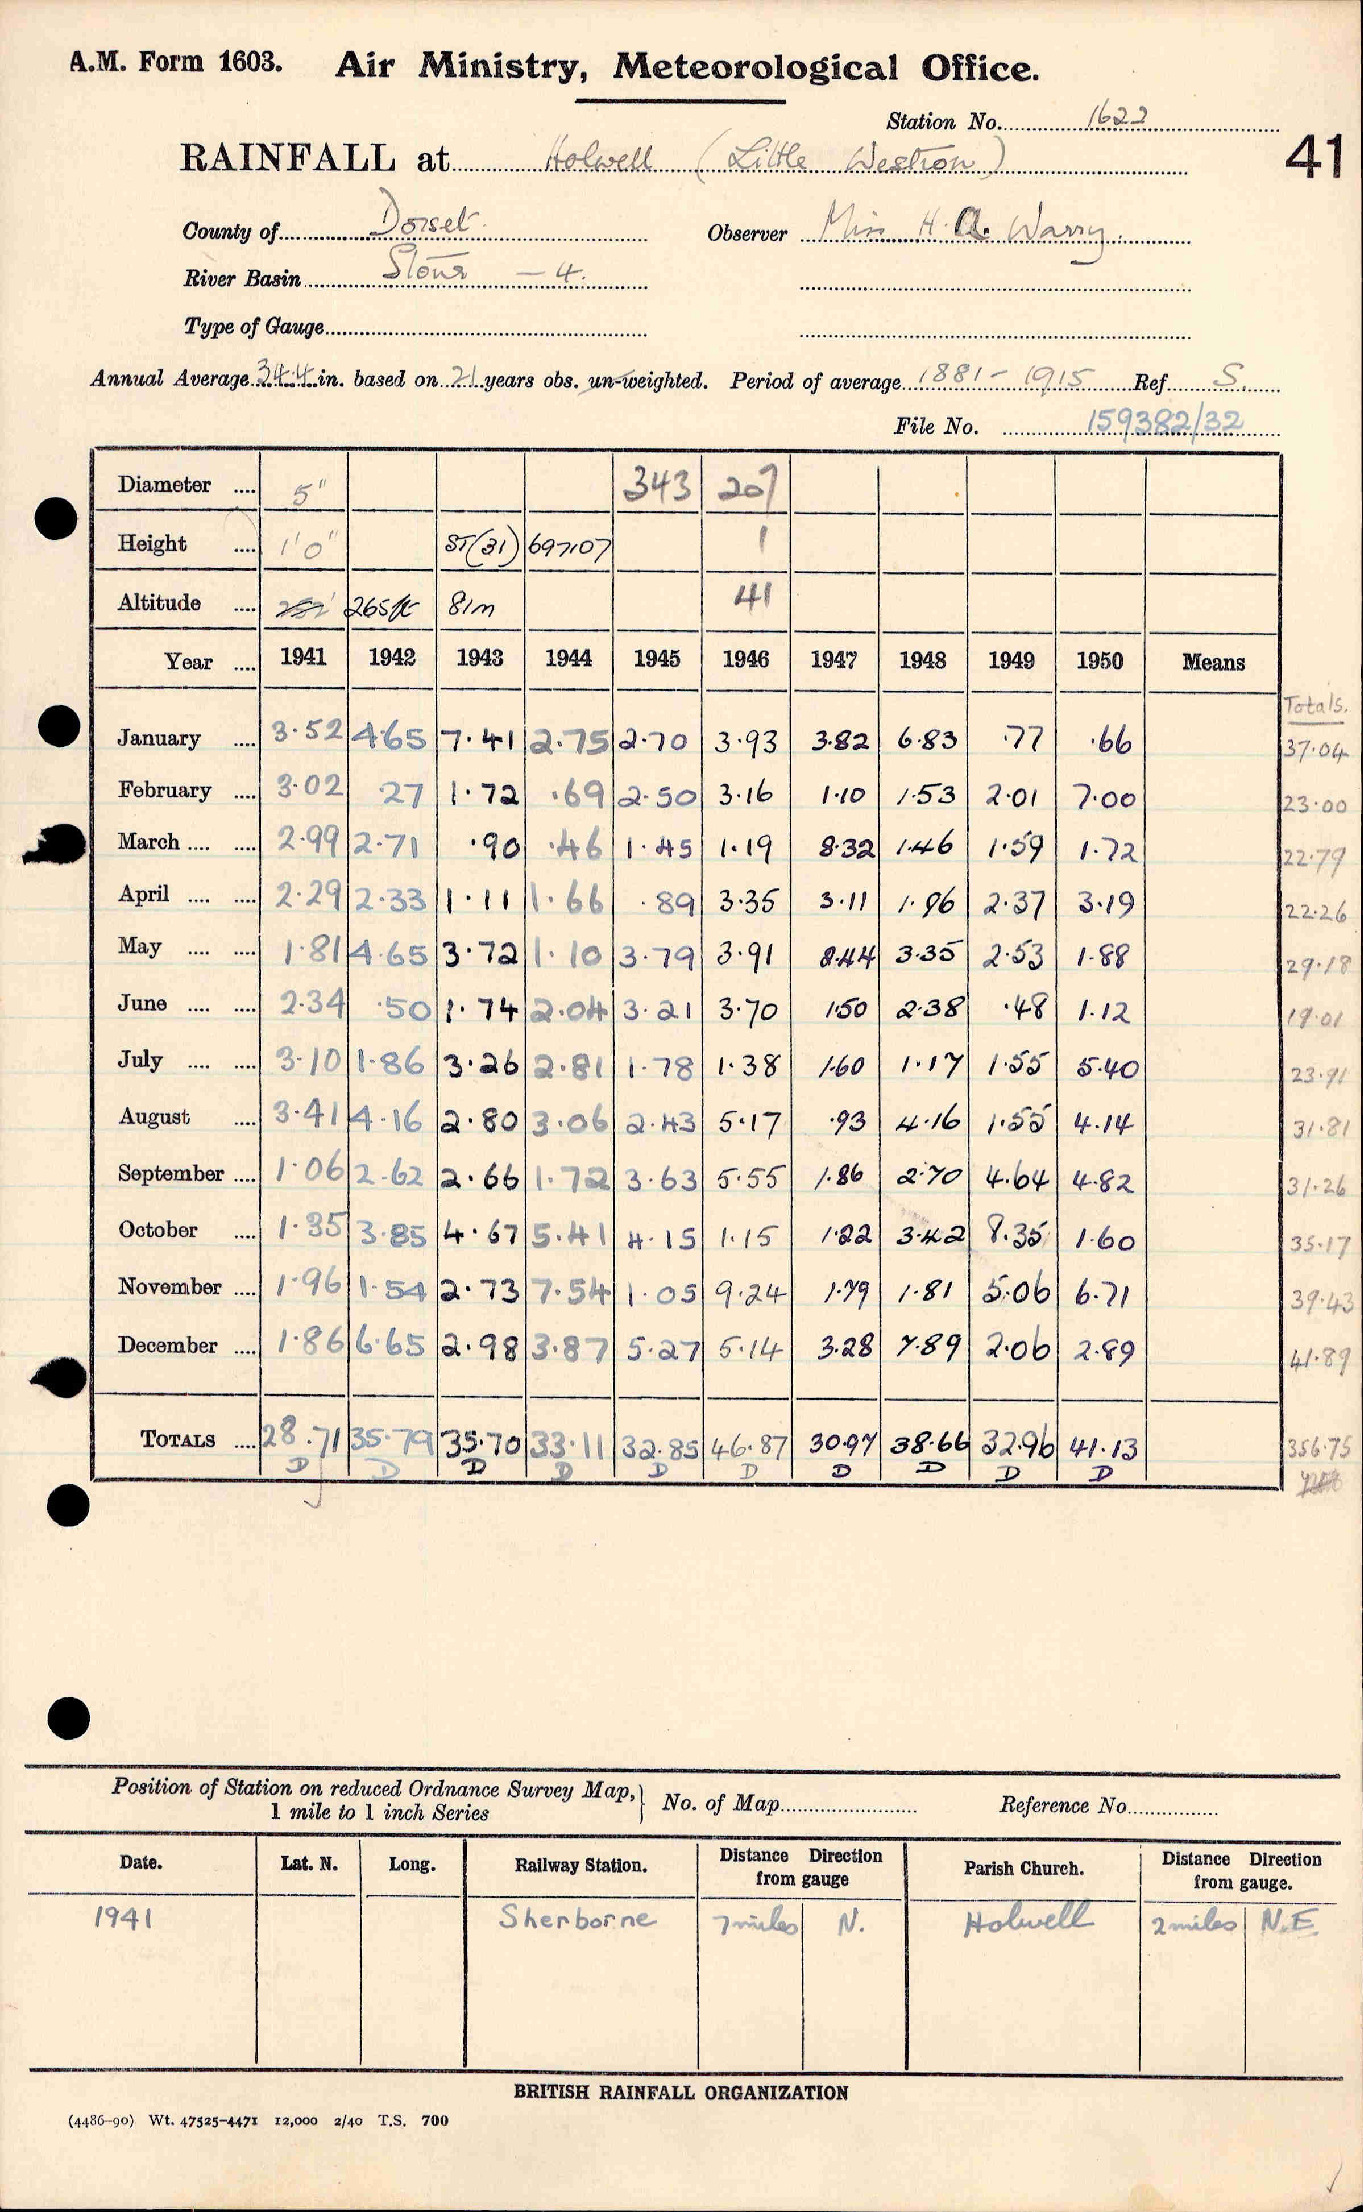 A.M. Form 1603. Air Ministry, Meteorological Office.
Station No. 1622
41
RAINFALL at Holwell (Little Westrow)
County of Dorset. Observer Miss H. A. Warry.
River Basin Stour – 4.
Type of Gauge
Annual Average 34.4 in. based on 21 years obs. un-weighted. Period of average 1881 – 1915 Ref S.
File No. 159382/32
Diameter .... 5" 343 207
Height .... 1'0" ST(31) 697107 1
Altitude .... 265ft 81m 41
Year .... 1941 1942 1943 1944 1945 1946 1947 1948 1949 1950 Means
Totals.
January .... 3.52 4.65 7.41 2.75 2.70 3.93 3.82 6.83 .77 .66 37.04
February .... 3.02 .27 1.72 .69 2.50 3.16 1.10 1.53 2.01 7.00 23.00
March .... .... 2.99 2.71 .90 .46 1.45 1.19 8.32 1.46 1.59 1.72 22.79
April .... .... 2.29 2.33 1.11 1.66 .89 3.35 3.11 1.96 2.37 3.19 22.26
May .... .... 1.81 4.65 3.72 1.10 3.79 3.91 2.44 3.35 2.53 1.88 29.18
June .... .... 2.34 .50 1.74 2.04 3.21 3.70 1.50 2.38 .48 1.12 19.01
July .... .... 3.10 1.86 3.26 2.81 1.78 1.38 1.60 1.17 1.55 5.40 23.91
August .... 3.41 4.16 2.80 3.06 2.43 5.17 .93 4.16 1.55 4.14 31.81
September .... 1.06 2.62 2.66 1.72 3.63 5.55 1.86 2.70 4.64 4.82 31.26
October .... 1.35 3.85 4.67 5.41 4.15 1.15 1.22 3.42 8.35 1.60 35.17
November .... 1.96 1.54 2.73 7.54 1.05 9.24 1.79 1.81 5.06 6.71 39.43
December .... 1.86 6.65 2.98 3.87 5.27 5.14 3.28 7.89 2.06 2.89 41.89
TOTALS .... 28.71 35.79 35.70 33.11 32.85 46.87 30.97 38.66 32.96 41.13 356.75
D D D D D D D D D D
Position of Station on reduced Ordnance Survey Map, 1 mile to 1 inch Series } No. of Map Reference No.
Date. Lat. N. Long. Railway Station. Distance Direction from gauge Parish Church. Distance Direction from gauge.
1941 Sherborne 7 miles N. Holwell 2 miles N.E
BRITISH RAINFALL ORGANIZATION
(4486–90) Wt. 47525–4471 12,000 2/40 T.S. 700